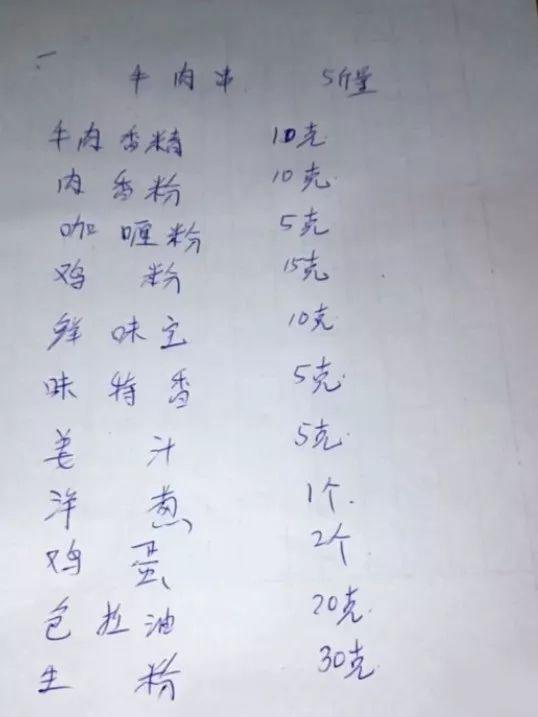 一
牛肉串 5斤量
牛肉香精 10克
肉香粉 10克
咖喱粉 5克
鸡粉 15克
鲜味宝 10克
味特香 5克
姜汁 5克
洋葱 1个
鸡蛋 2个
色拉油 20克
生粉 30克